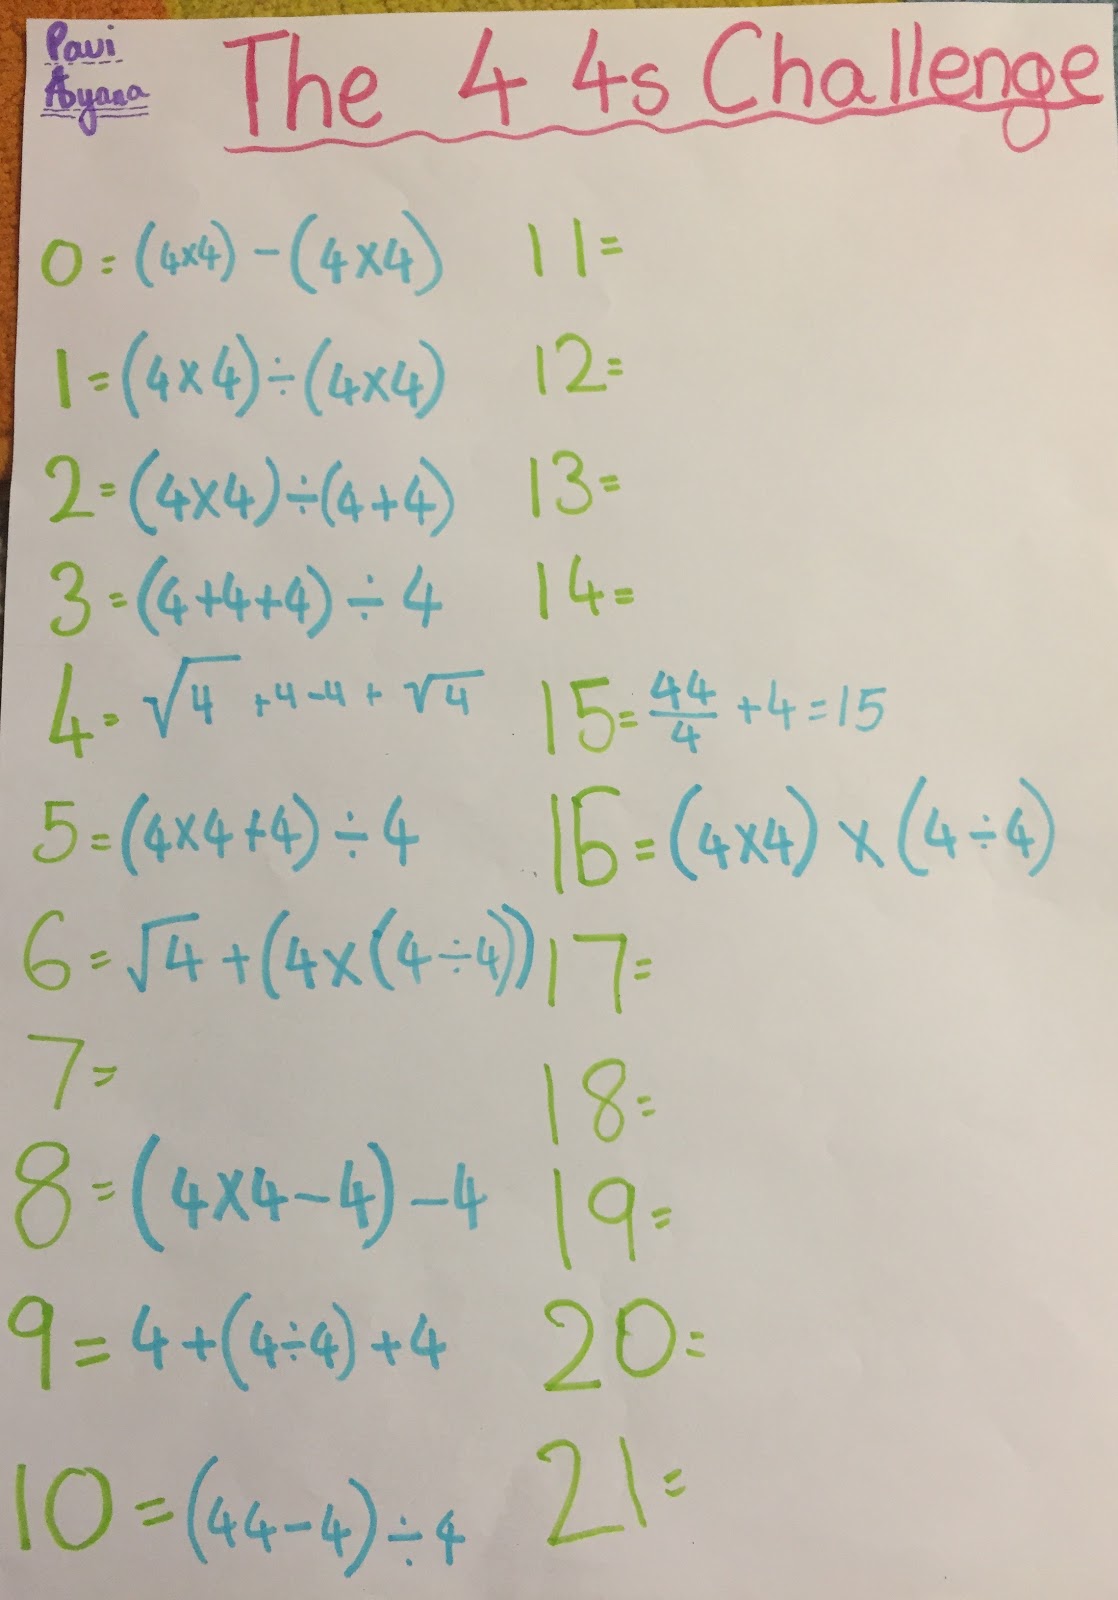 Pavi
Ayana
The 4 4s Challenge
0 = (4×4) - (4×4)
1 = (4×4) ÷ (4×4)
2 = (4×4) ÷ (4+4)
3 = (4+4+4) ÷ 4
4 = √4 +4-4+ √4
5 = (4×4+4) ÷ 4
6 = √4 + (4×(4÷4))
7=
8 = (4×4-4) -4
9 = 4 + (4÷4) + 4
10 = (44-4) ÷ 4
11=
12=
13=
14=
15= 44/4 +4=15
16= (4×4) × (4÷4)
17=
18=
19=
20=
21=